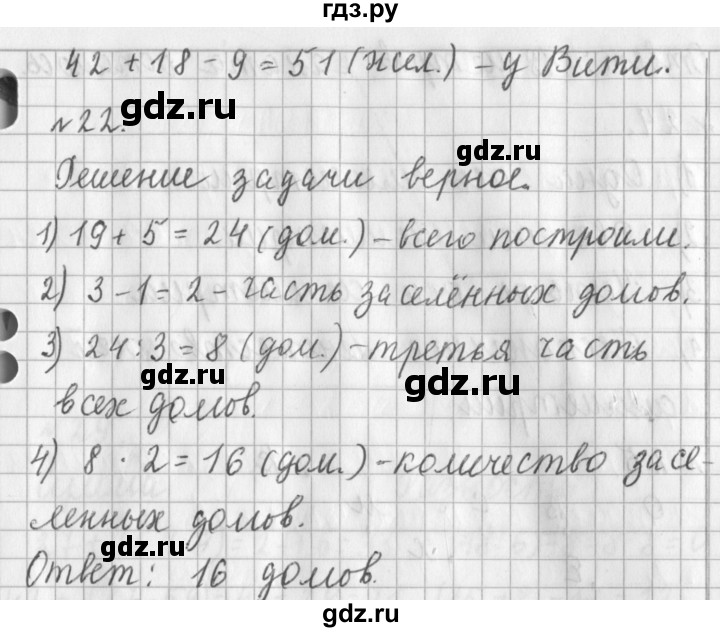 гдз.ру
42 + 18 - 9 = 51 (жел.) - у Вити.
gdz.ru
№22.
gdz.ru
Решение задачи верное.
1) 19 + 5 = 24 (дом.) - всего построили.
2) 3 - 1 = 2 - часть заселённых домов.
3) 24 : 3 = 8 (дом.) - третья часть
gdz.ru
gdz.ru
всех домов.
4) 8 · 2 = 16 (дом.) - количество засе-
ленных домов.
gdz.ru
gdz.ru
Ответ: 16 домов.
gdz.ru